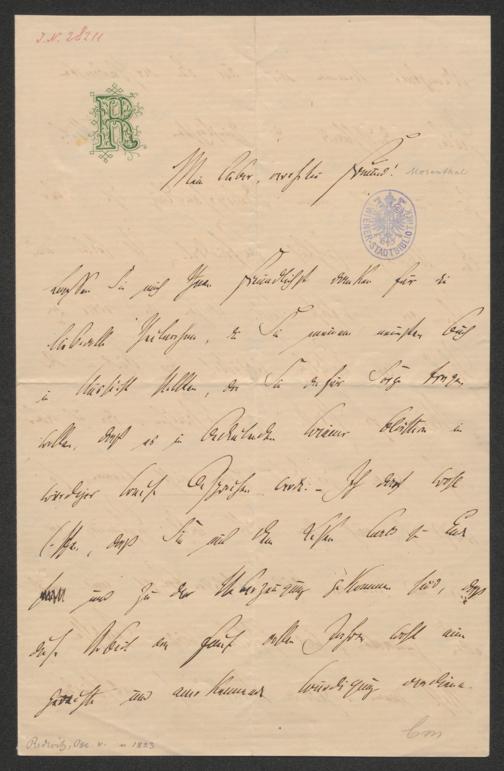 I.N. 28211
R
Mein lieber, verehrter Freund!
Mosenthal
WIENER-STADTBIBLIOTHEK
lassen Sie mich Ihnen freundlichst danken für die
liebevolle Theilnahme, die Sie meinem neuesten Buch
in Aussicht stellten, da Sie dafür Sorge tragen
wollen, daß es in bedeutenden Wiener Blättern in
würdiger Weise besprochen werde. – Ich darf wohl
hoffen, daß Sie mit dem zu Ende
und zu der Überzeugung gekommen sind, daß
diese Arbeit von fünf vollen Jahren wohl eine
gerechte und anerkennende Würdigung verdiene.
Redwitz, Osc. v. 1823